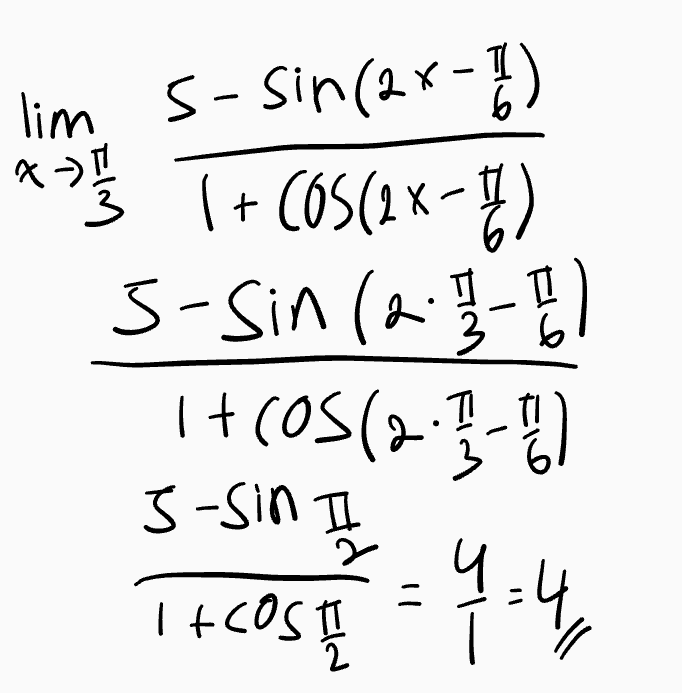 lim x→π/3 (5 - sin(2x - π/6)) / (1 + cos(2x - π/6))
(5 - sin(2·π/3 - π/6)) / (1 + cos(2·π/3 - π/6))
(5 - sin π/2) / (1 + cos π/2) = 4/1 = 4